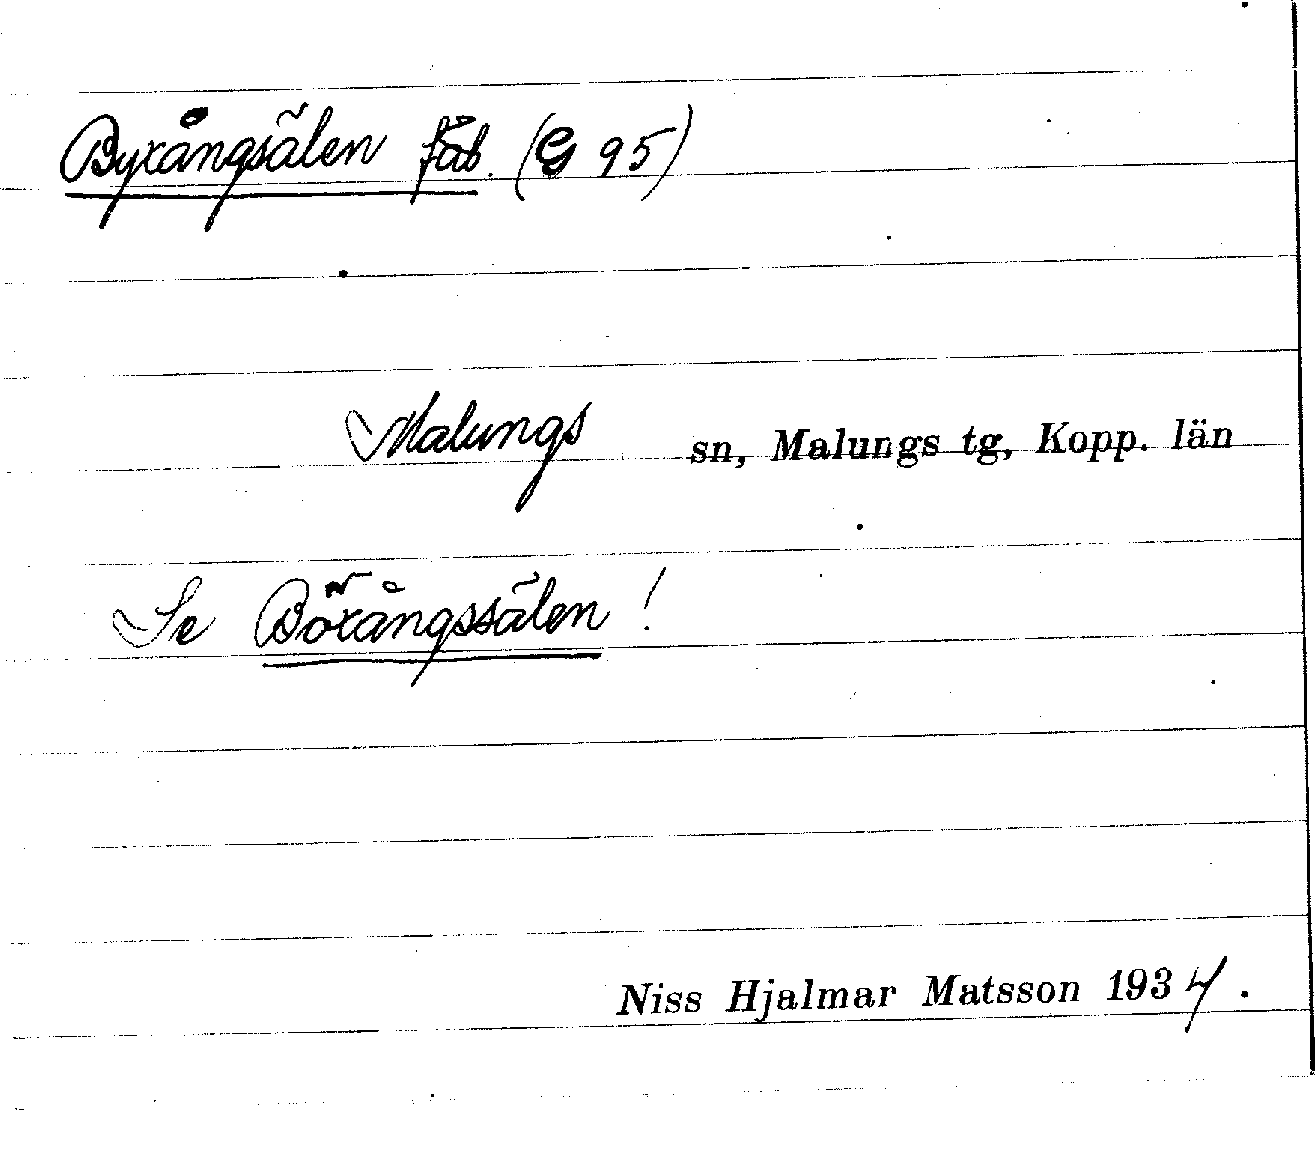 Byrångsälen fäb. (G 95)
Malungs sn, Malungs tg, Kopp. län
Se Börångssälen!
Niss Hjalmar Matsson 1934.